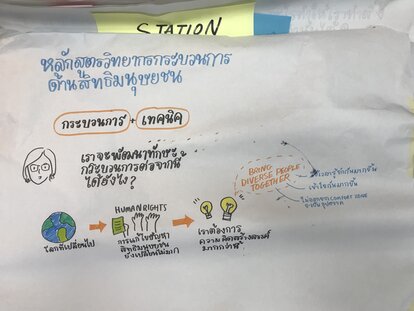 STATION
หลักสูตรวิทยากรกระบวนการ
ด้านสิทธิมนุษยชน
กระบวนการ + เทคนิค
เราจะพัฒนาทักษะ
กระบวนการต่อจากนี้
ได้ยังไง?
BRING
DIVERSE PEOPLE
TOGETHER
เข้าใจกันมากขึ้น
HUMAN RIGHTS
โลกที่เปลี่ยนไป
การแก้ไขปัญหา
สิทธิมนุษยชน
ยังเปลี่ยนไม่มาก
เราต้องการ
ความคิดสร้างสรรค์
มากกว่านี้